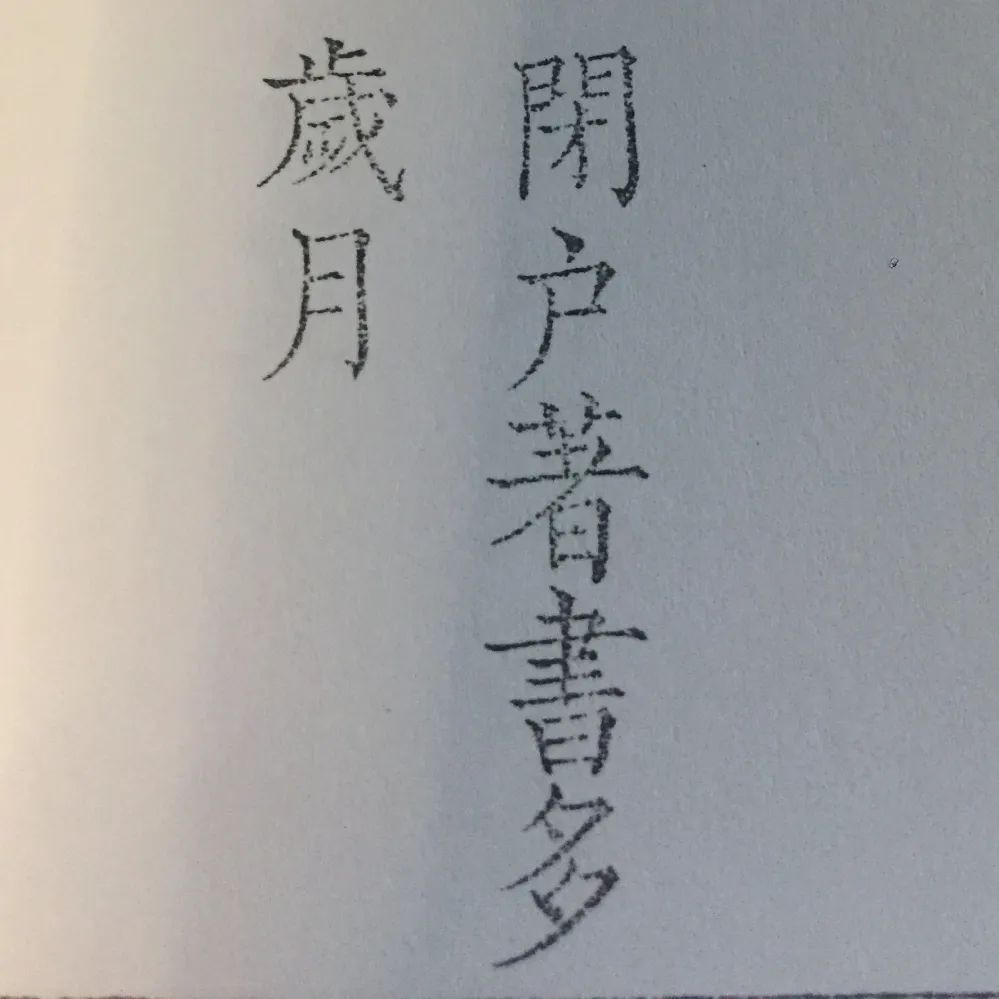 閉户著書多
歲月